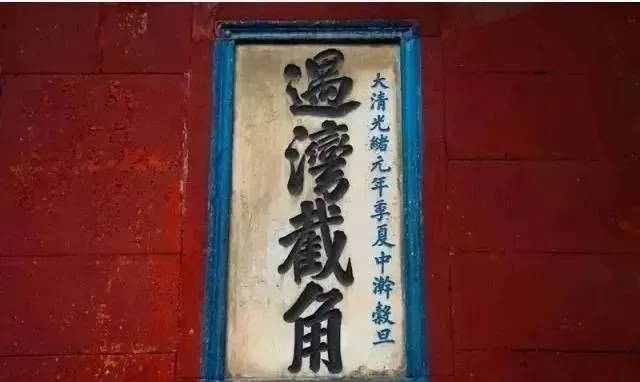 大清光緒元年季夏中澣穀旦
過灣截角